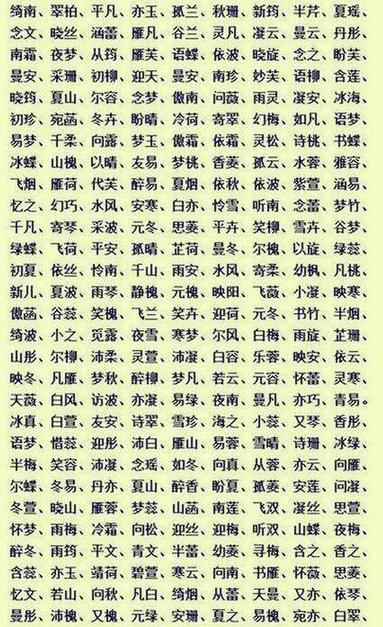 绮南、翠柏、平凡、亦玉、孤兰、秋珊、新筠、半芹、夏瑶、
念文、晓丝、涵蕾、雁凡、谷兰、灵凡、凝云、曼云、丹彤、
南霜、夜梦、从筠、雁芙、语蝶、依波、晓旋、念之、盼芙、
曼安、采珊、初柳、迎天、曼安、南珍、妙芙、语柳、含莲、
晓筠、夏山、尔容、念梦、傲南、问薇、雨灵、凝安、冰海、
初珍、宛菡、冬卉、盼晴、冷荷、寄翠、幻梅、如凡、语梦、
易梦、千柔、向露、梦玉、傲霜、依霜、灵松、诗桃、书蝶、
冰蝶、山槐、以晴、友易、梦桃、香菱、孤云、水蓉、雅容、
飞烟、雁荷、代芙、醉易、夏烟、依秋、依波、紫萱、涵易、
忆之、幻巧、水风、安寒、白亦、怜雪、听南、念蕾、梦竹、
千凡、寄琴、采波、元冬、思菱、平卉、笑柳、雪卉、谷梦、
绿蝶、飞荷、平安、孤晴、芷荷、曼冬、尔槐、以旋、绿蕊、
初夏、依丝、怜南、千山、雨安、水风、寄柔、幼枫、凡桃、
新儿、夏波、雨琴、静槐、元槐、映阳、飞薇、小凝、映寒、
傲菡、谷蕊、笑槐、飞兰、笑卉、迎荷、元冬、书竹、半烟、
绮波、小之、觅露、夜雪、寒梦、尔风、白梅、雨旋、芷珊、
山彤、尔柳、沛柔、灵萱、沛凝、白容、乐蓉、映安、依云、
映冬、凡雁、梦秋、醉柳、梦凡、若云、元容、怀蕾、灵寒、
天薇、白风、访波、亦凝、易绿、夜南、曼凡、亦巧、青易。
冰真、白萱、友安、诗翠、雪珍、海之、小蕊、又琴、香彤、
语梦、惜蕊、迎彤、沛白、雁山、易蓉、雪晴、诗珊、冰绿、
半梅、笑容、沛凝、念瑶、如冬、向真、从蓉、亦云、向雁、
尔蝶、冬易、丹亦、夏山、醉香、盼夏、孤菱、安莲、问凝、
冬萱、晓山、雁蓉、梦蕊、山菡、南莲、飞双、凝丝、思萱、
怀梦、雨梅、冷霜、向松、迎丝、迎梅、听双、山蝶、夜梅、
醉冬、雨筠、平文、青文、半蕾、幼菱、寻梅、含之、香之、
含蕊、亦玉、靖荷、碧萱、寒云、向南、书雁、怀薇、思菱、
忆文、若山、向秋、凡白、绮烟、从蕾、天曼、又亦、依琴、
曼彤、沛槐、又槐、元绿、安珊、夏之、易槐、宛亦、白翠、